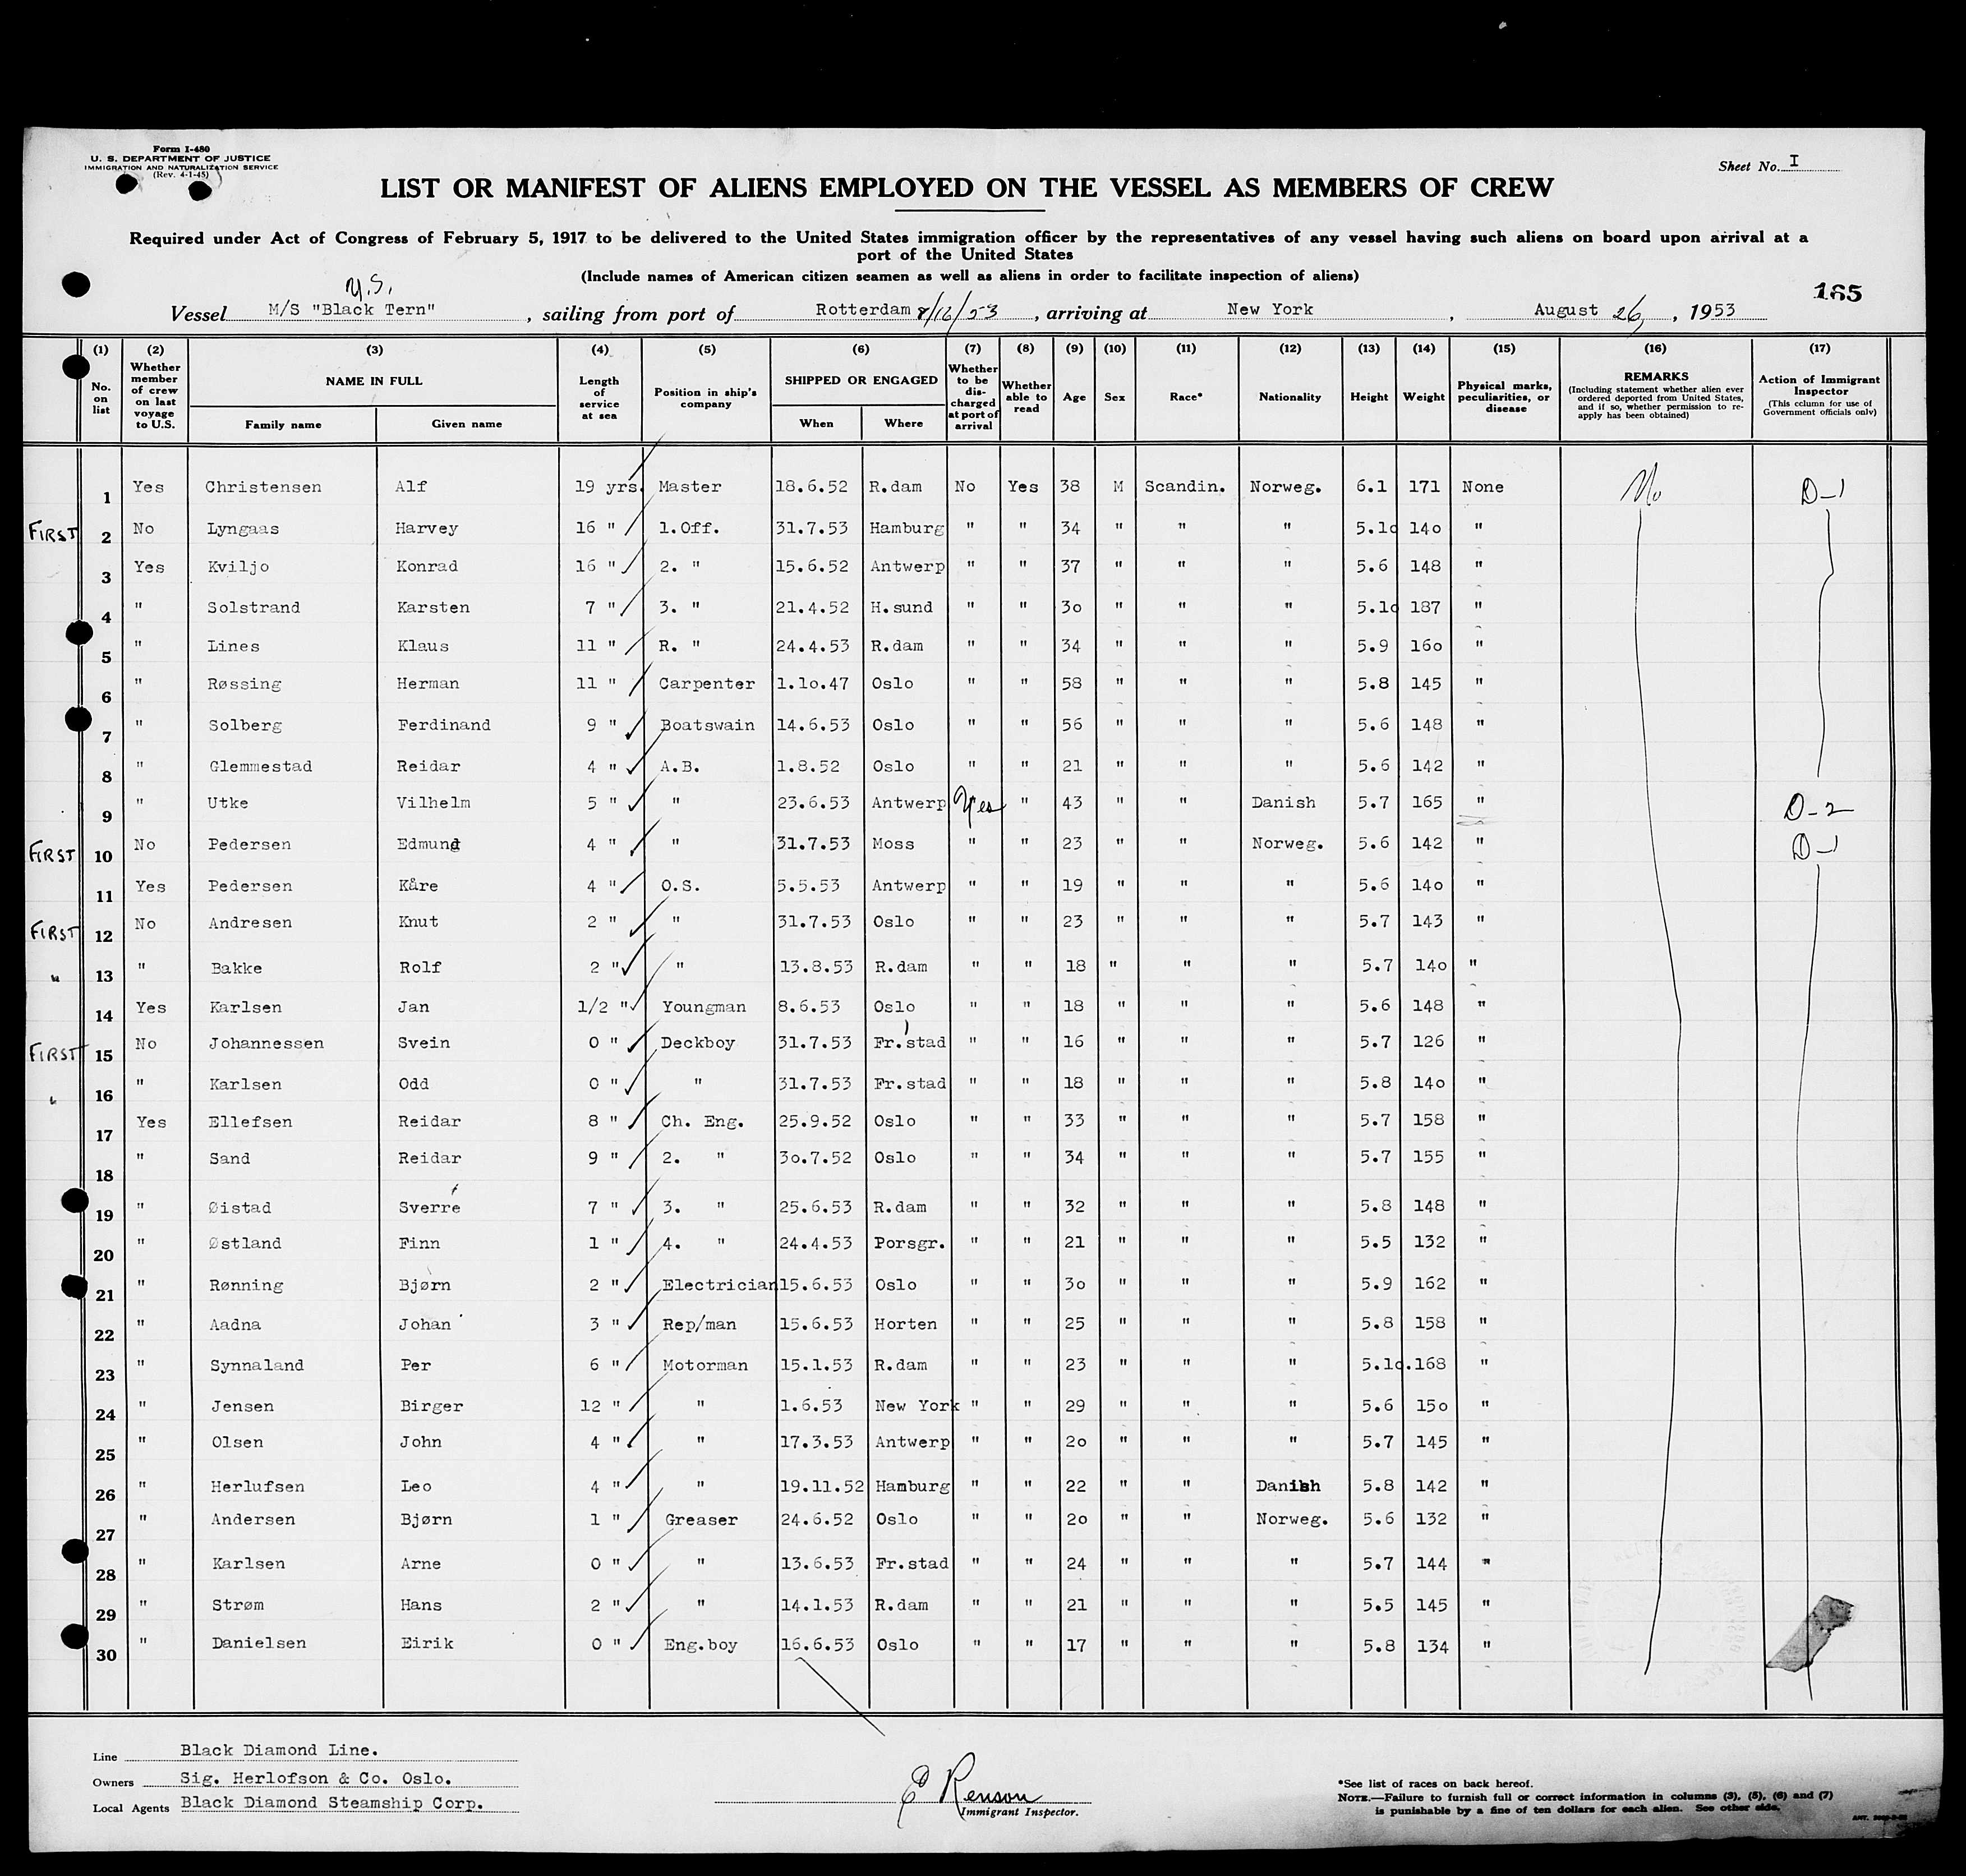 Form I-480
U. S. DEPARTMENT OF JUSTICE
IMMIGRATION AND NATURALIZATION SERVICE
(Rev. 4-1-45)
Sheet No. I
LIST OR MANIFEST OF ALIENS EMPLOYED ON THE VESSEL AS MEMBERS OF CREW
Required under Act of Congress of February 5, 1917 to be delivered to the United States immigration officer by the representatives of any vessel having such aliens on board upon arrival at a
port of the United States
(Include names of American citizen seamen as well as aliens in order to facilitate inspection of aliens)
165
Vessel M/S "Black Tern" , sailing from port of Rotterdam 8/16/53 , arriving at New York , August 26, , 1953
(1) (2) (3) (4) (5) (6) (7) (8) (9) (10) (11) (12) (13) (14) (15) (16) (17)
No. on list
Whether member of crew on last voyage to U.S.
NAME IN FULL
Family name Given name
Length of service at sea
Position in ship's company
SHIPPED OR ENGAGED
When Where
Whether to be discharged at port of arrival
Whether able to read
Age Sex Race* Nationality Height Weight
Physical marks, peculiarities, or disease
REMARKS
(Including statement whether alien ever ordered deported from United States, and if so, whether permission to re-apply has been obtained)
Action of Immigrant Inspector
(This column for use of Government officials only)
1 Yes Christensen Alf 19 yrs. Master 18.6.52 R.dam No Yes 38 M Scandin. Norweg. 6.1 171 None No D-1
FIRST 2 No Lyngaas Harvey 16 " 1.Off. 31.7.53 Hamburg " " 34 " " " 5.1o 14o "
3 Yes Kviljo Konrad 16 " 2. " 15.6.52 Antwerp " " 37 " " " 5.6 148 "
4 " Solstrand Karsten 7 " 3. " 21.4.52 H.sund " " 3o " " " 5.1o 187 "
5 " Lines Klaus 11 " R. " 24.4.53 R.dam " " 34 " " " 5.9 16o "
6 " Røssing Herman 11 " Carpenter 1.1o.47 Oslo " " 58 " " " 5.8 145 "
7 " Solberg Ferdinand 9 " Boatswain 14.6.53 Oslo " " 56 " " " 5.6 148 "
8 " Glemmestad Reidar 4 " A.B. 1.8.52 Oslo " " 21 " " " 5.6 142 "
9 " Utke Vilhelm 5 " " 23.6.53 Antwerp Yes " 43 " " Danish 5.7 165 " D-2
FIRST 10 No Pedersen Edmund 4 " " 31.7.53 Moss " " 23 " " Norweg. 5.6 142 " D-1
11 Yes Pedersen Kåre 4 " O.S. 5.5.53 Antwerp " " 19 " " " 5.6 14o "
FIRST 12 No Andresen Knut 2 " " 31.7.53 Oslo " " 23 " " " 5.7 143 "
" 13 " Bakke Rolf 2 " " 13.8.53 R.dam " " 18 " " " 5.7 14o "
14 Yes Karlsen Jan 1/2 " Youngman 8.6.53 Oslo " " 18 " " " 5.6 148 "
FIRST 15 No Johannessen Svein 0 " Deckboy 31.7.53 Fr.stad " " 16 " " " 5.7 126 "
" 16 " Karlsen Odd 0 " " 31.7.53 Fr.stad " " 18 " " " 5.8 14o "
17 Yes Ellefsen Reidar 8 " Ch. Eng. 25.9.52 Oslo " " 33 " " " 5.7 158 "
18 " Sand Reidar 9 " 2. " 3o.7.52 Oslo " " 34 " " " 5.7 155 "
19 " Øistad Sverre 7 " 3. " 25.6.53 R.dam " " 32 " " " 5.8 148 "
20 " Østland Finn 1 " 4. " 24.4.53 Porsgr. " " 21 " " " 5.5 132 "
21 " Rønning Bjørn 2 " Electrician 15.6.53 Oslo " " 3o " " " 5.9 162 "
22 " Aadna Johan 3 " Rep/man 15.6.53 Horten " " 25 " " " 5.8 158 "
23 " Synnaland Per 6 " Motorman 15.1.53 R.dam " " 23 " " " 5.1o. 168 "
24 " Jensen Birger 12 " " 1.6.53 New York " " 29 " " " 5.6 15o "
25 " Olsen John 4 " " 17.3.53 Antwerp " " 2o " " " 5.7 145 "
26 " Herlufsen Leo 4 " " 19.11.52 Hamburg " " 22 " " Danish 5.8 142 "
27 " Andersen Bjørn 1 " Greaser 24.6.52 Oslo " " 2o " " Norweg. 5.6 132 "
28 " Karlsen Arne 0 " " 13.6.53 Fr.stad " " 24 " " " 5.7 144 "
29 " Strøm Hans 2 " " 14.1.53 R.dam " " 21 " " " 5.5 145 "
30 " Danielsen Eirik 0 " Eng.boy 16.6.53 Oslo " " 17 " " " 5.8 134 "
Line Black Diamond Line.
Owners Sig. Herlofson & Co. Oslo.
Local Agents Black Diamond Steamship Corp.
E Renson
Immigrant Inspector.
*See list of races on back hereof.
NOTE.—Failure to furnish full or correct information in columns (3), (5), (6) and (7)
is punishable by a fine of ten dollars for each alien. See other side.